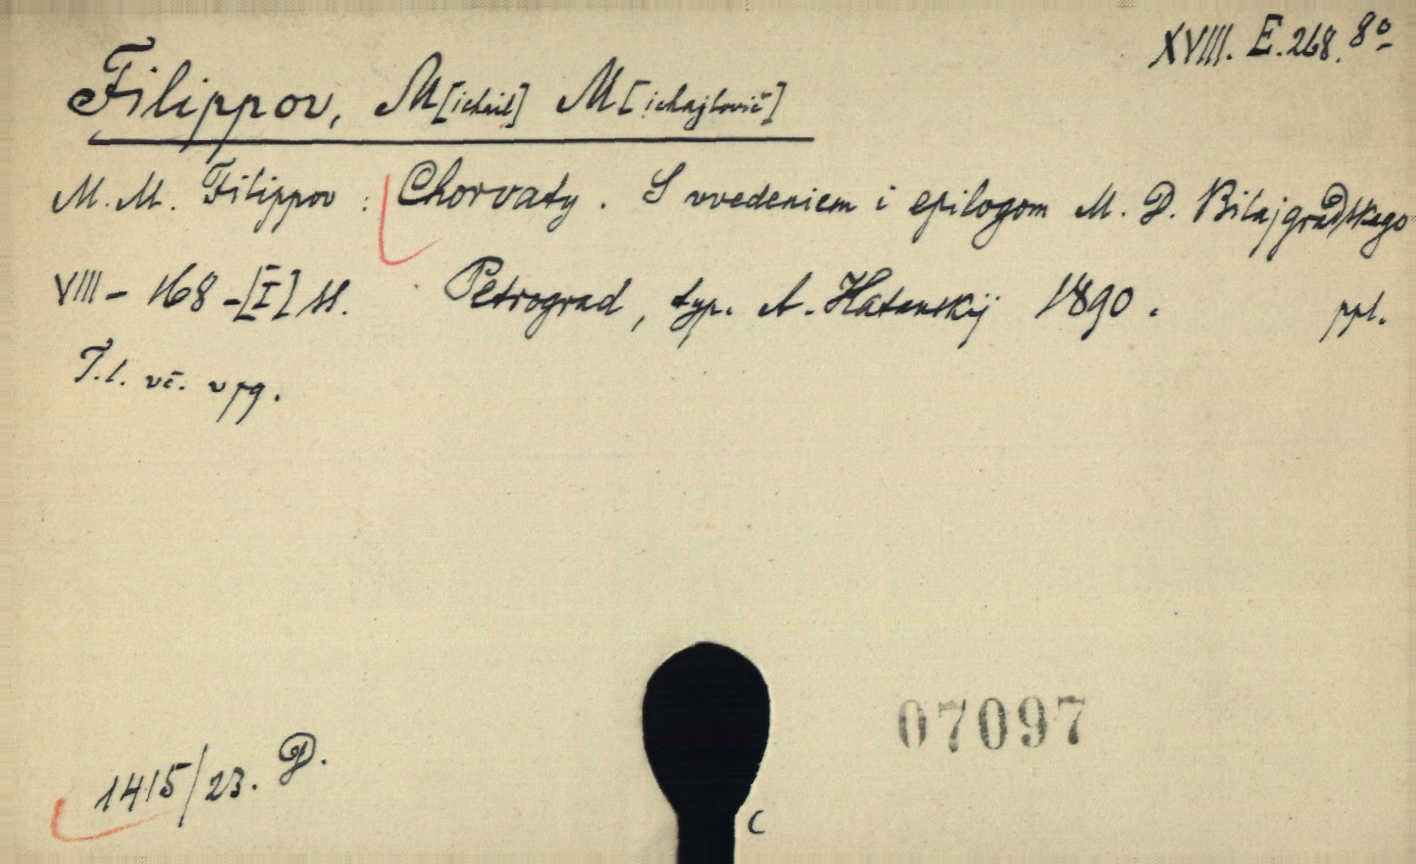 XVIII. E. 268. 8º
Filippov, M[ichail] M[ichajlovič]
M. M. Filippov : Chorvaty. S vvedeniem i epilogom M. D.
VIII – 168 – [I] str. Petrograd, typ. A. 1890. ppl.
T. l. vč. v pg.
07097
1415/23. D.
C